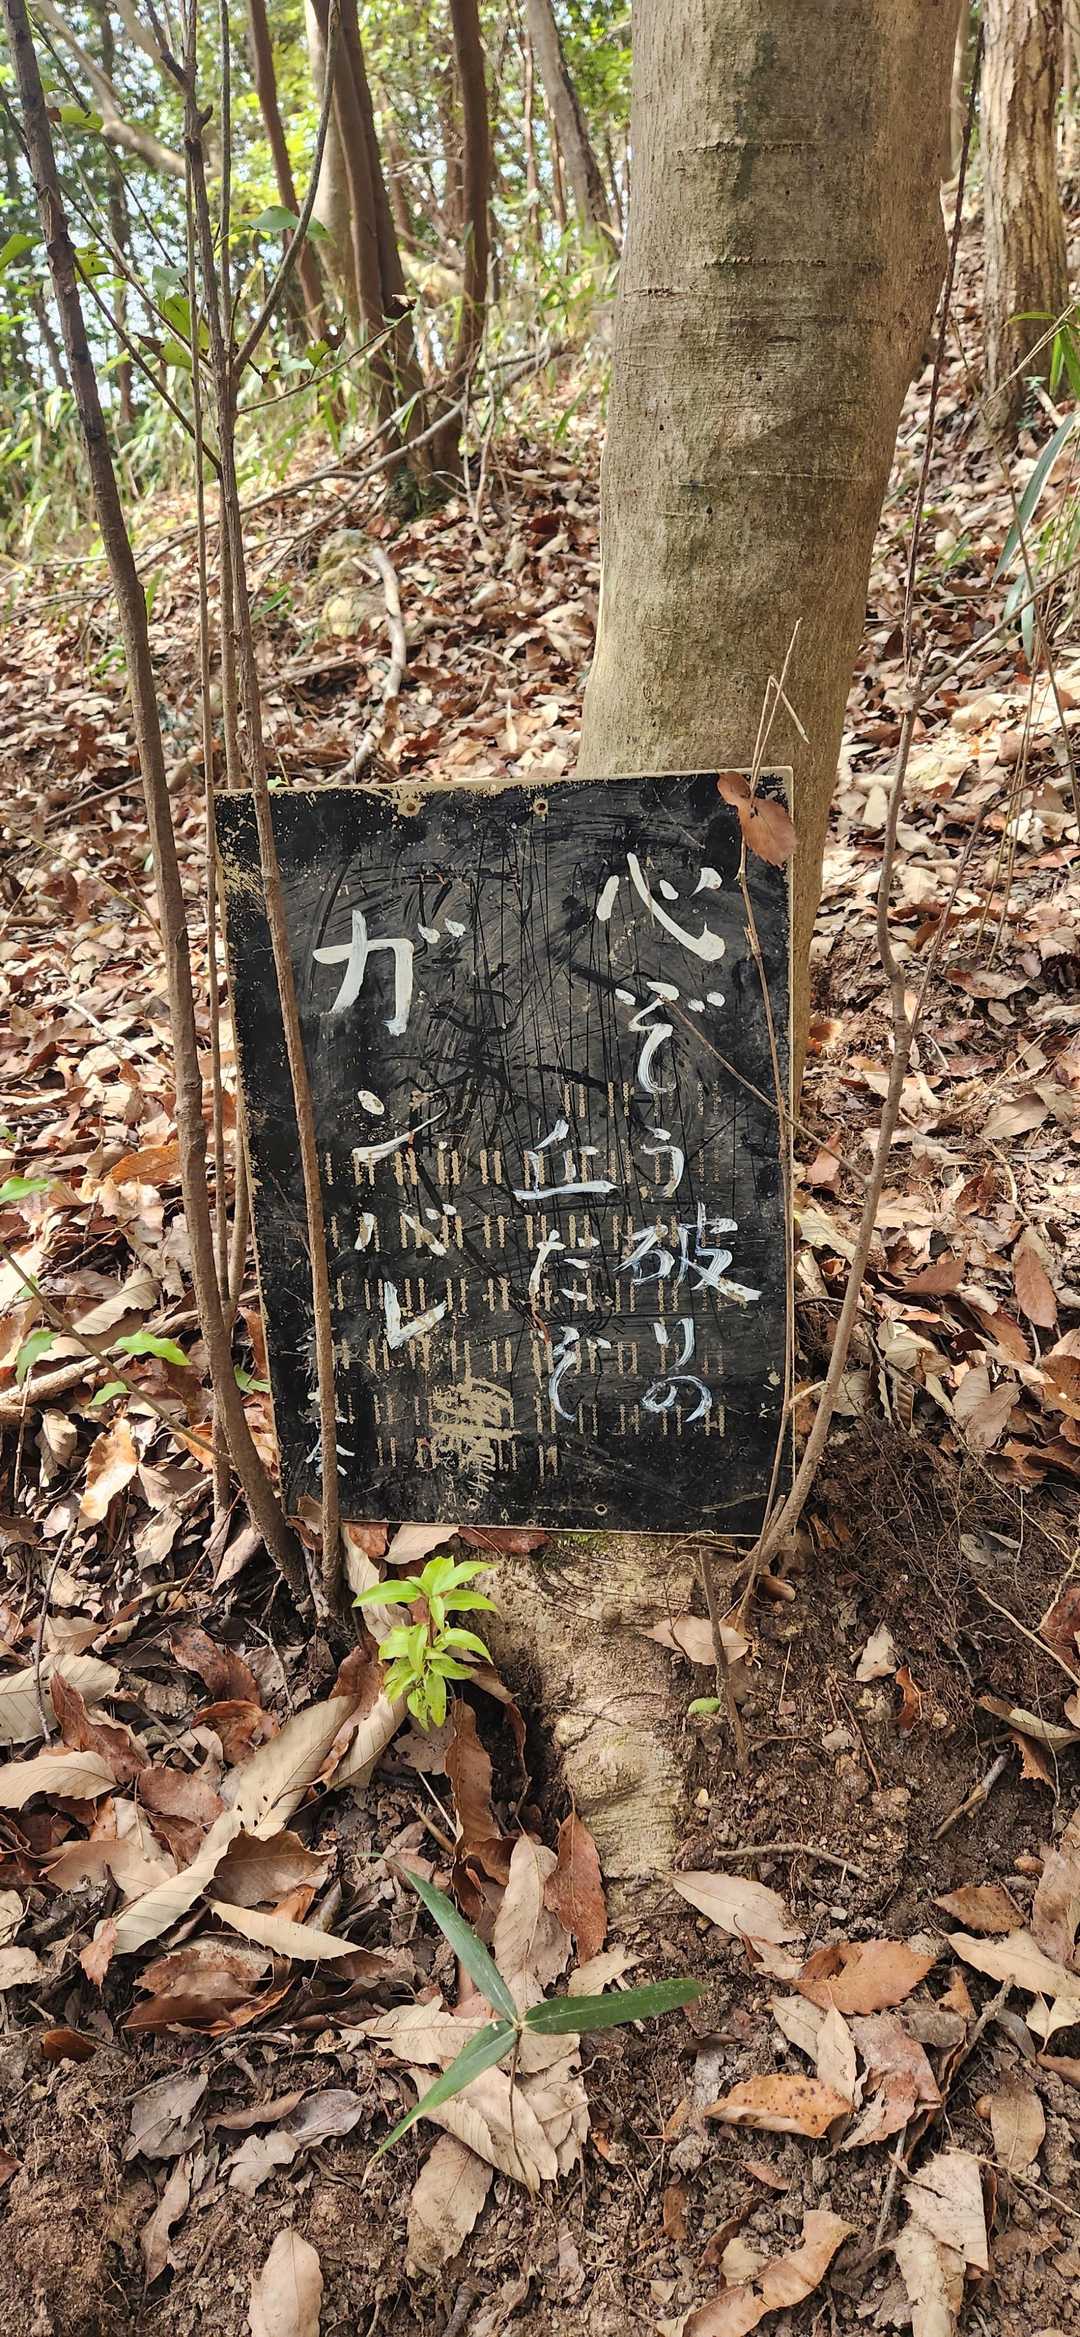 心ぞう破りの
丘だぞ
ガンバレ